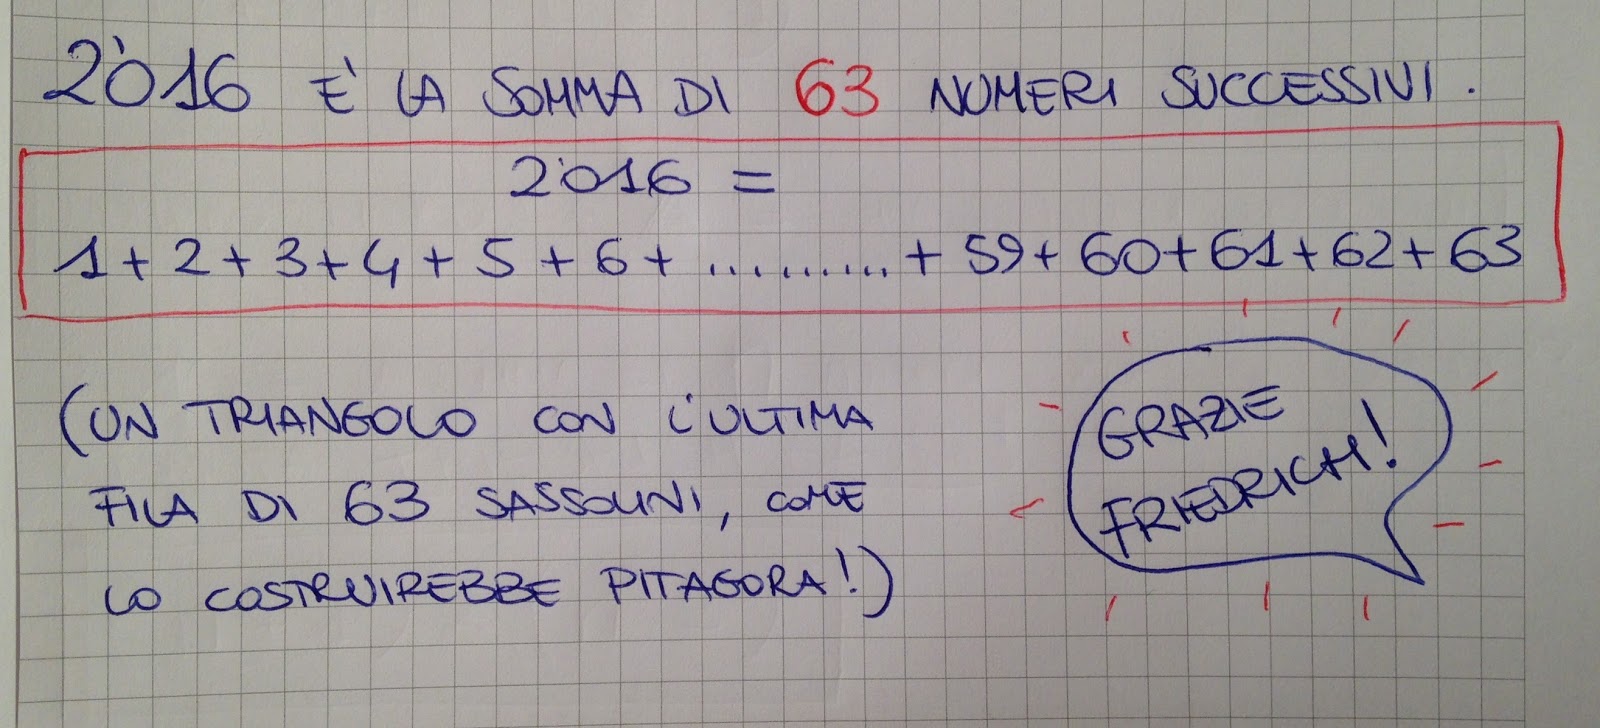 2'016 E' LA SOMMA DI 63 NUMERI SUCCESSIVI.
2'016 =
1+2+3+4+5+6+..........+59+60+61+62+63
(UN TRIANGOLO CON L'ULTIMA
FILA DI 63 SASSOLINI, COME
LO COSTRUIREBBE PITAGORA!)
GRAZIE
FRIEDRICH!